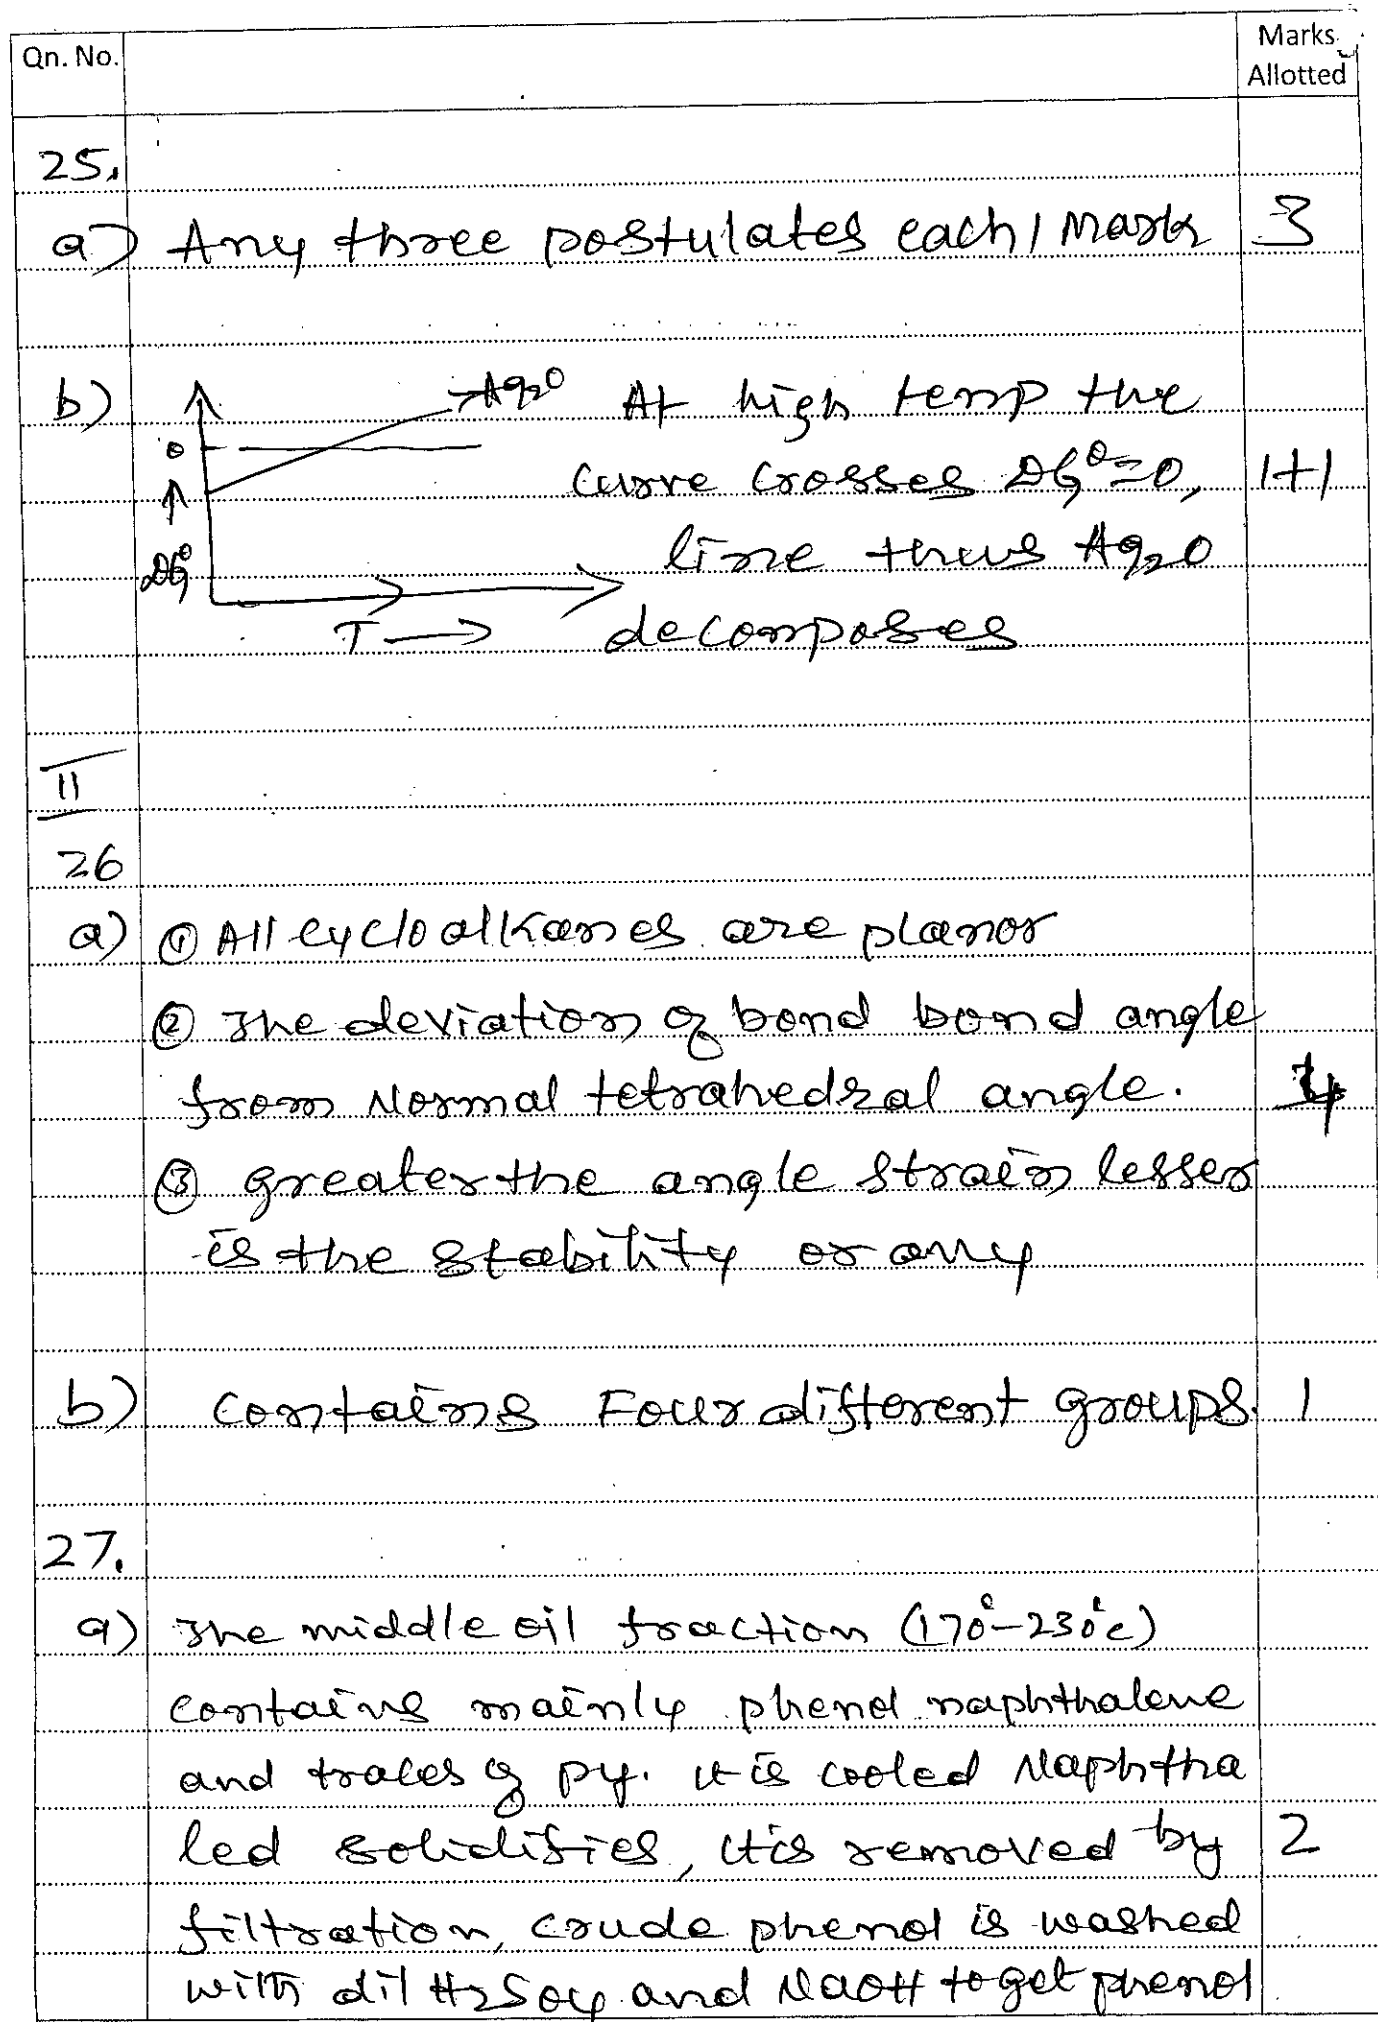 Qn. No.
Marks
Allotted
25.
a) Any three postulates each 1 Mark 3
b) Ag2O At high temp the
0 curve crosses ΔG°=0, 1+1
ΔG° line thus Ag2O
T → decomposes
II
26
a) ① All cycloalkanes are planar
② The deviation of bond bond angle
from Normal tetrahedral angle.
③ greater the angle strain lesser
is the stability or any
b) contains Four different groups. 1
27.
a) The middle oil fraction (170°-230°c)
contains mainly phenol naphthalene
and traces of py. it is cooled Naphtha
led solidifies, it is removed by 2
filtration, crude phenol is washed
with dil H2SO4 and NaOH to get phenol